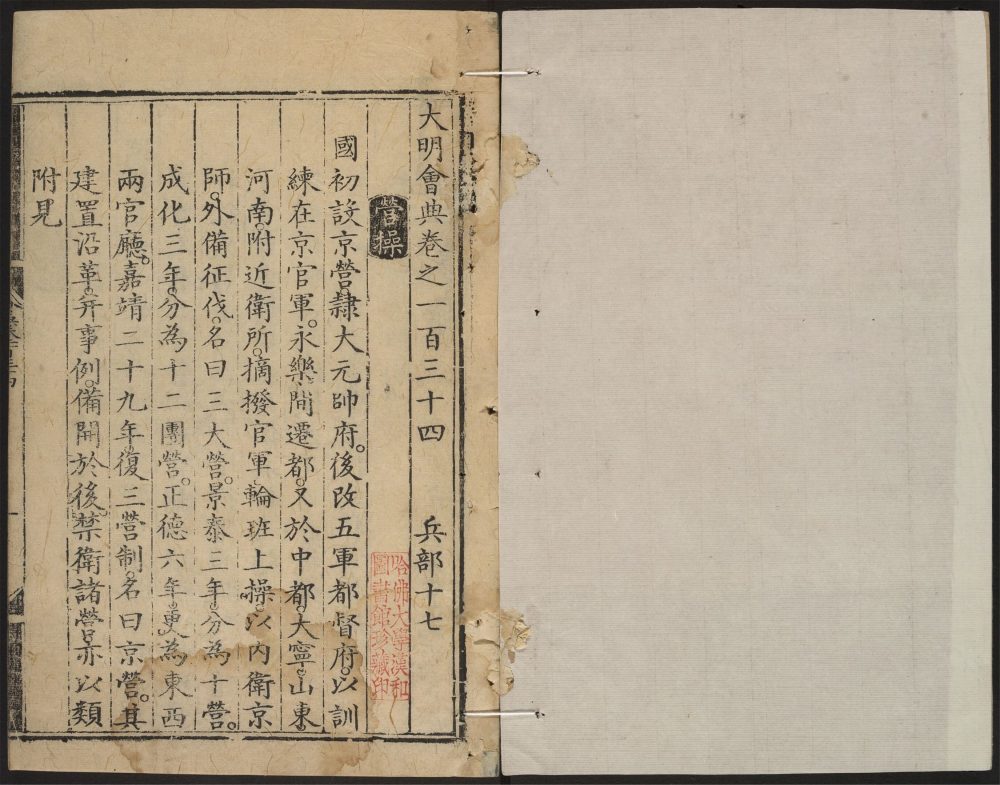 大明會典卷之一百三十四　兵部十七
營操
國初設京營。隷大元帥府。後改五軍都督府。以訓
練在京官軍。永樂間遷都。又於中都。大寧。山東。
河南。附近衛所。摘撥官軍輪班上操。以內衛京
師。外備征伐。名曰三大營。景泰三年。分為十營。
成化三年。分為十二團營。正德六年。更為東西
兩官廳。嘉靖二十九年。復三營制。名曰京營。其
建置沿革。并事例。備開於後。禁衛諸營。亦以類
附見
哈佛大學漢和
圖書館珍藏印